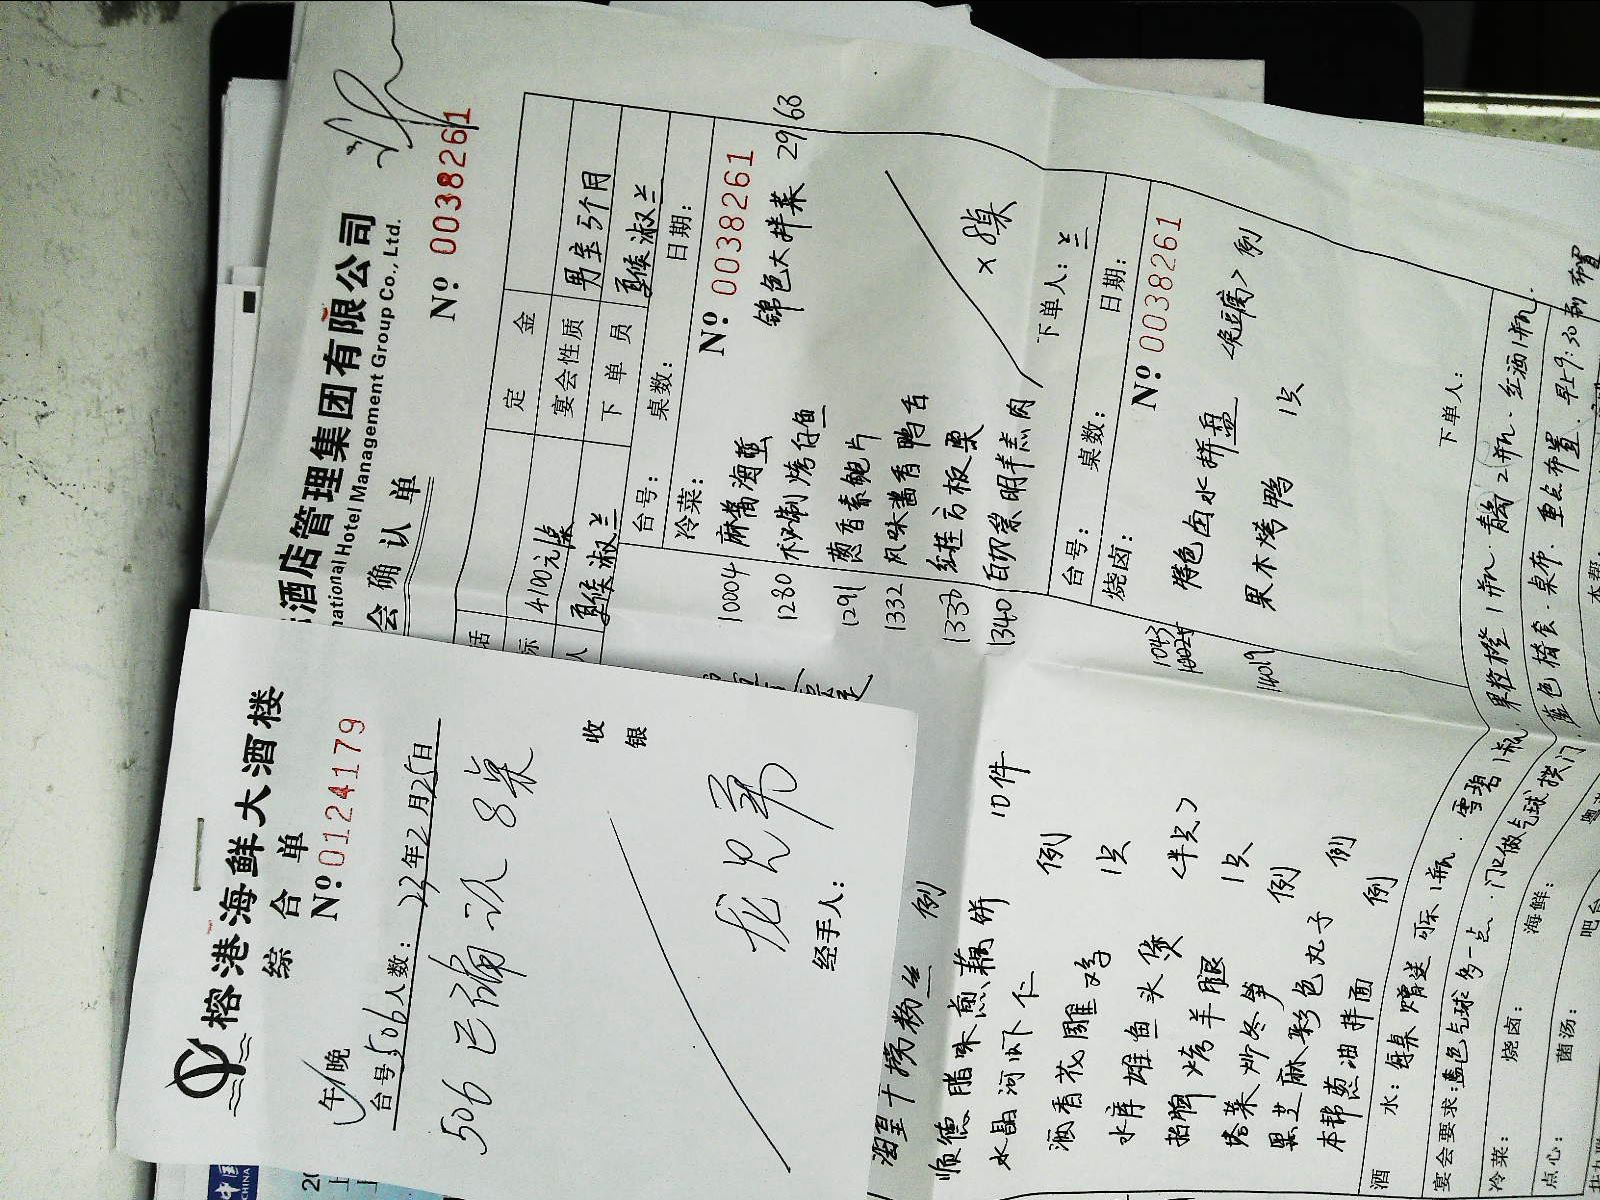 榕港海鲜大酒楼
综合单
午/晚
Nº:0124179
台号506人数:23年2月25日
506 已确认 8桌
收银
经手人:
龙兄弟
酒店管理集团有限公司
national Hotel Management Group Co., Ltd.
会确认单
Nº: 0038261
定金
4100元/桌
宴会性质
男宝 5个月
夏候淑兰
下单员
夏候淑兰
台号:
桌数:
日期:
冷菜:
Nº: 0038261
1004 麻酱海蜇
锦色大拌菜 2968
1280 秘制烤仔鱼
1291 葱香素鲍片
1332 风味酱香鸭舌
133 桂方板栗
1340 白切崇明羊糕肉
×8桌
台号:
桌数:
下单人:兰
日期:
烧卤:
Nº: 0038261
1043 特色卤水拼盘 <兔豆腐> 例
14019 果木烤鸭 1只
下单人:
粉丝 例
顺德脂味煎藕饼 10件
水晶河虾仁 例
酒香花雕鸡 1只
水库雄鱼头煲 <半只>
招牌烤羊腿 1只
塔菜炒冬笋 例
黑芝麻彩色丸子 例
本帮葱油拌面 例
酒水:每桌赠送可乐1瓶.雪碧1瓶.果粒橙1瓶.2瓶.红酒1瓶.
宴会要求:蓝色气球多一点.门口做气球拱门.蓝色椅套.桌布.重点布置.早上9:30到布置
冷菜:
烧卤:
海鲜:
本帮
点心:
菌汤:
吧台
CHINA